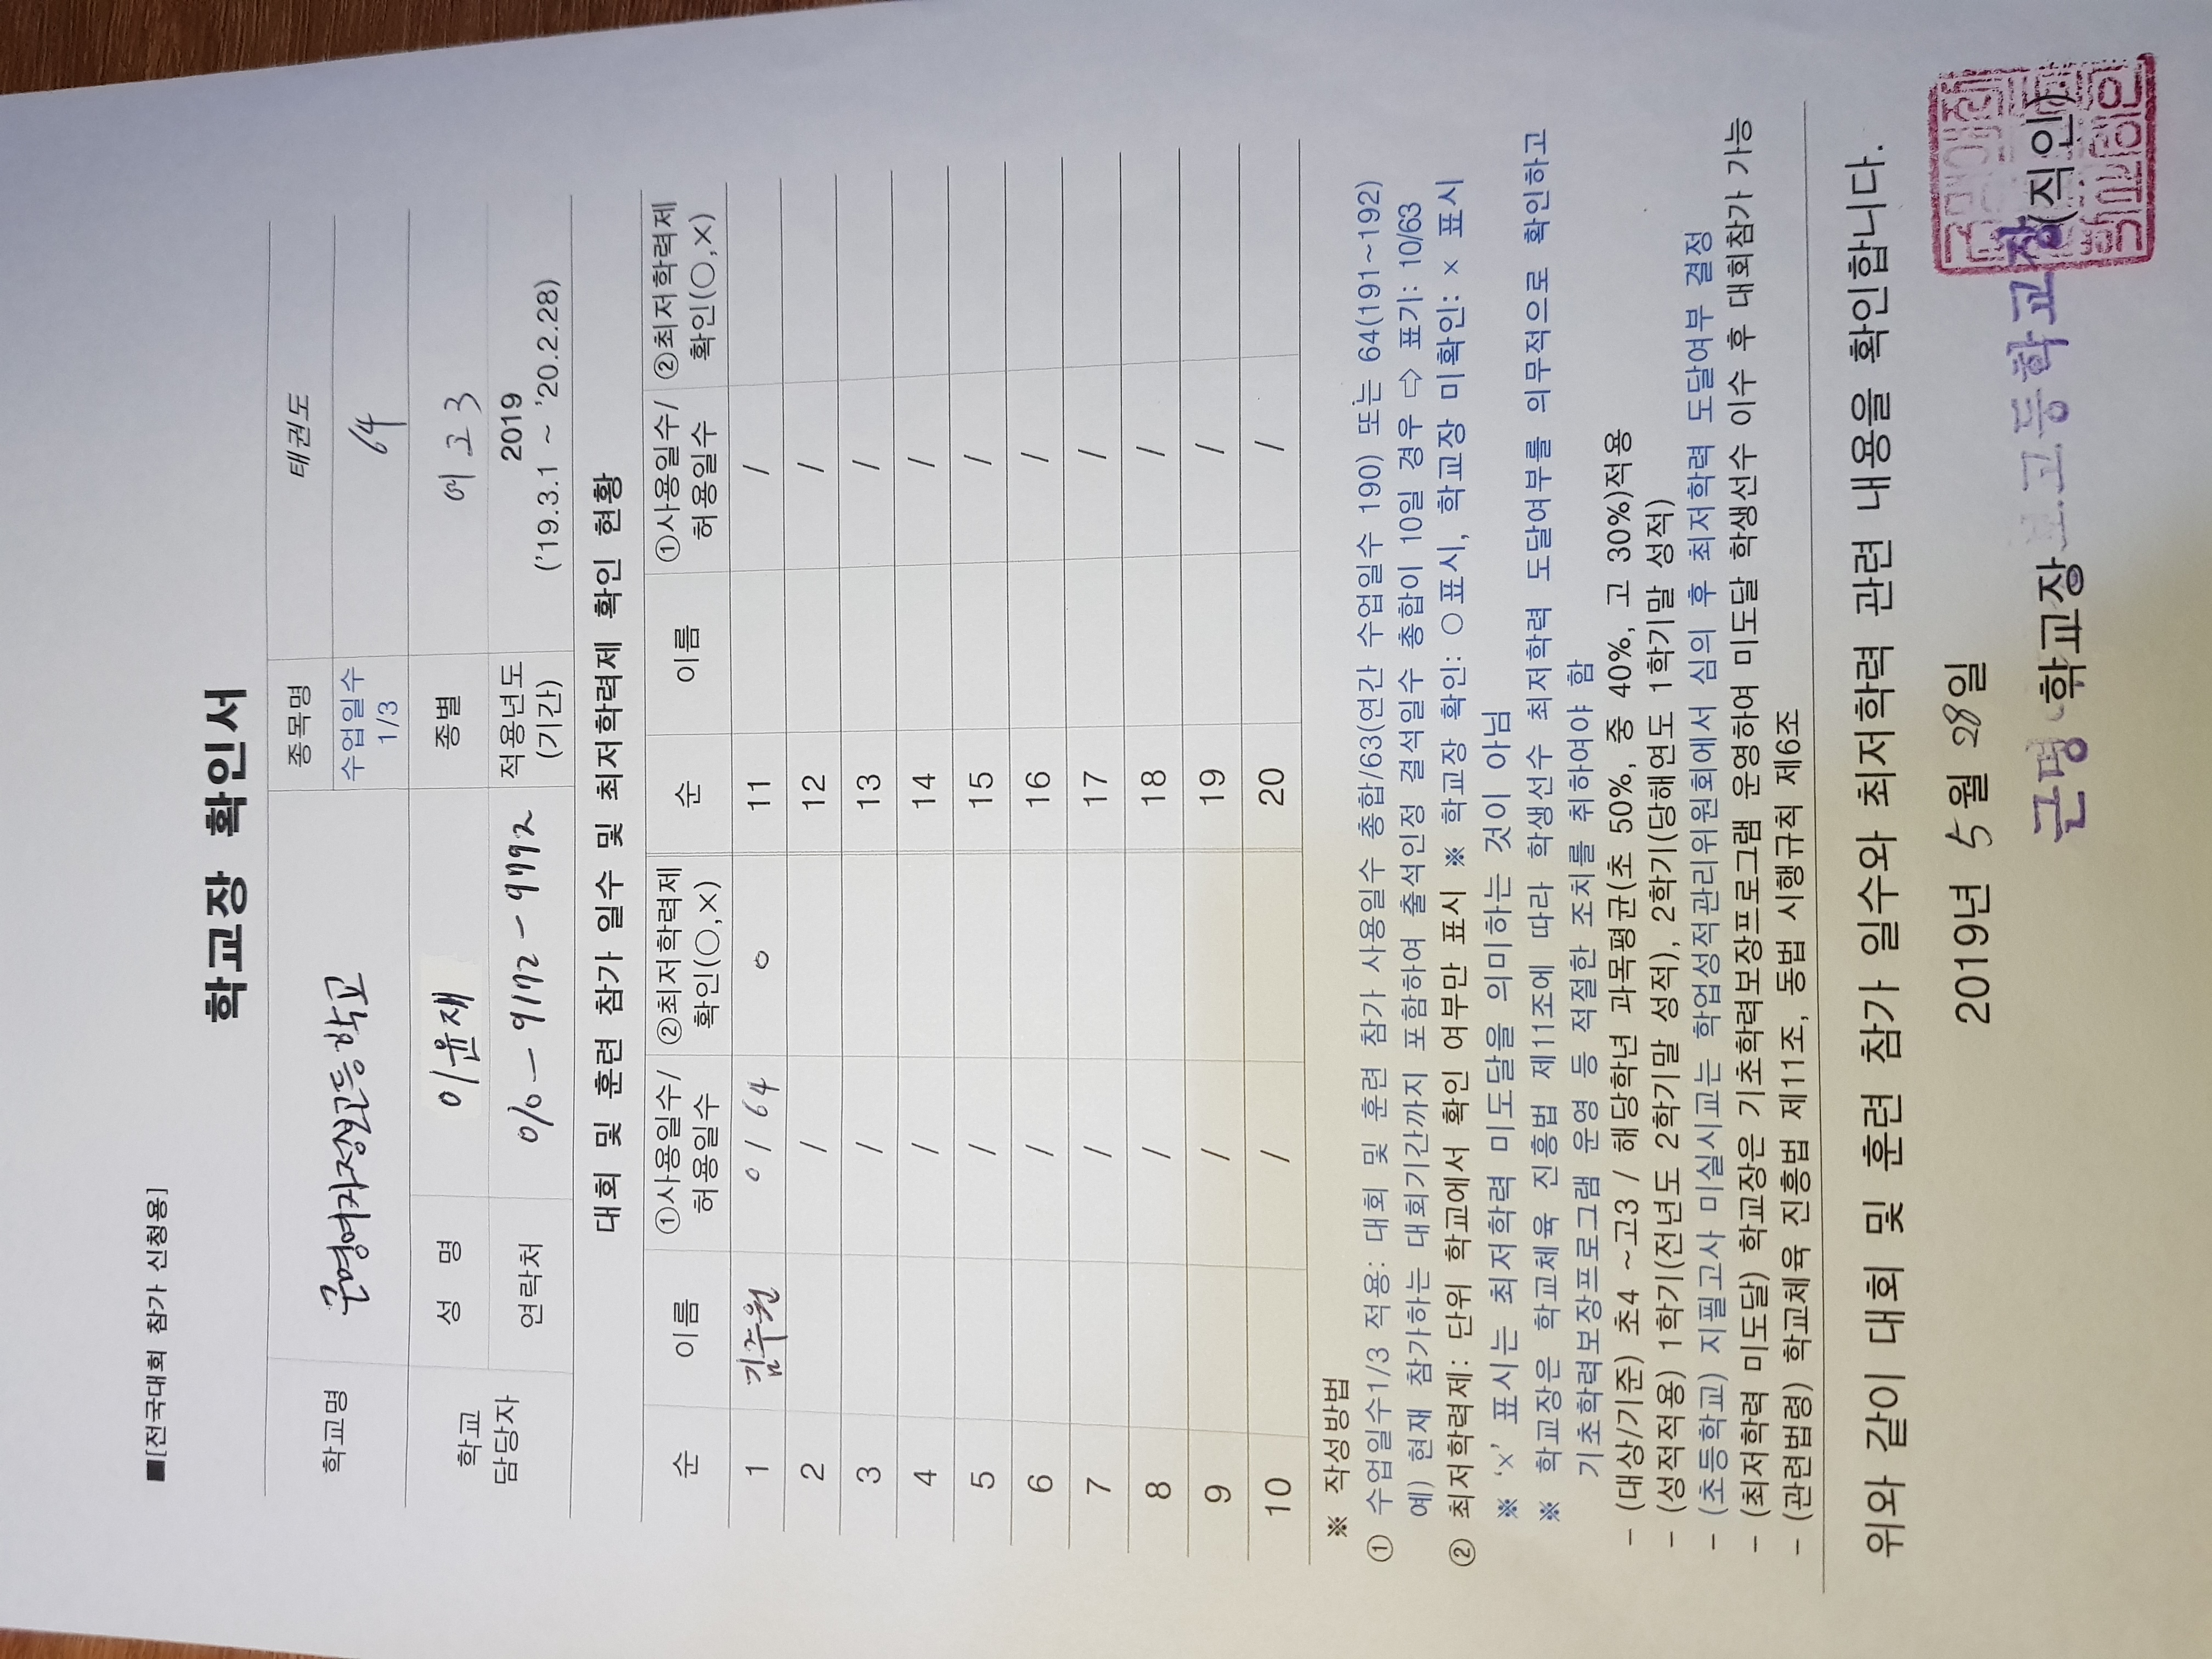 ■[전국대회 참가 신청용]
학교장 확인서
학교명 근명여자정보고등학교 종목명 태권도
수업일수 1/3 64
학교 담당자 성 명 이윤재 종별 여고3
연락처 010-9172-9792 적용년도 (기간) 2019 ('19.3.1 ~ '20.2.28)
대회 및 훈련 참가 일수 및 최저학력제 확인 현황
순 이름 ①사용일수/허용일수 ②최저학력제 확인(○,×) 순 이름 ①사용일수/허용일수 ②최저학력제 확인(○,×)
1 김수원 0 / 64 ○ 11 /
2 / 12 /
3 / 13 /
4 / 14 /
5 / 15 /
6 / 16 /
7 / 17 /
8 / 18 /
9 / 19 /
10 / 20 /
※ 작성방법
① 수업일수1/3 적용: 대회 및 훈련 참가 사용일수 총합/63(연간 수업일수 190) 또는 64(191~192)
예) 현재 참가하는 대회기간까지 포함하여 출석인정 결석일수 총합이 10일 경우 ⇨ 표기: 10/63
② 최저학력제: 단위 학교에서 확인 여부만 표시 ※ 학교장 확인: ○표시, 학교장 미확인: × 표시
※ '×' 표시는 최저학력 미도달을 의미하는 것이 아님
※ 학교장은 학교체육 진흥법 제11조에 따라 학생선수 최저학력 도달여부를 의무적으로 확인하고
기초학력보장프로그램 운영 등 적절한 조치를 취하여야 함
- (대상/기준) 초4 ~고3 / 해당학년 과목평균(초 50%, 중 40%, 고 30%)적용
- (성적적용) 1학기(전년도 2학기말 성적), 2학기(당해연도 1학기말 성적)
- (초등학교) 지필고사 미실시교는 학업성적관리위원회에서 심의 후 최저학력 도달여부 결정
- (최저학력 미도달) 학교장은 기초학력보장프로그램 운영하여 미도달 학생선수 이수 후 대회참가 가능
- (관련법령) 학교체육 진흥법 제11조, 동법 시행규칙 제6조
위와 같이 대회 및 훈련 참가 일수와 최저학력 관련 내용을 확인합니다.
2019년 5월 28일
근명 학교장 고등학교장 (직인)